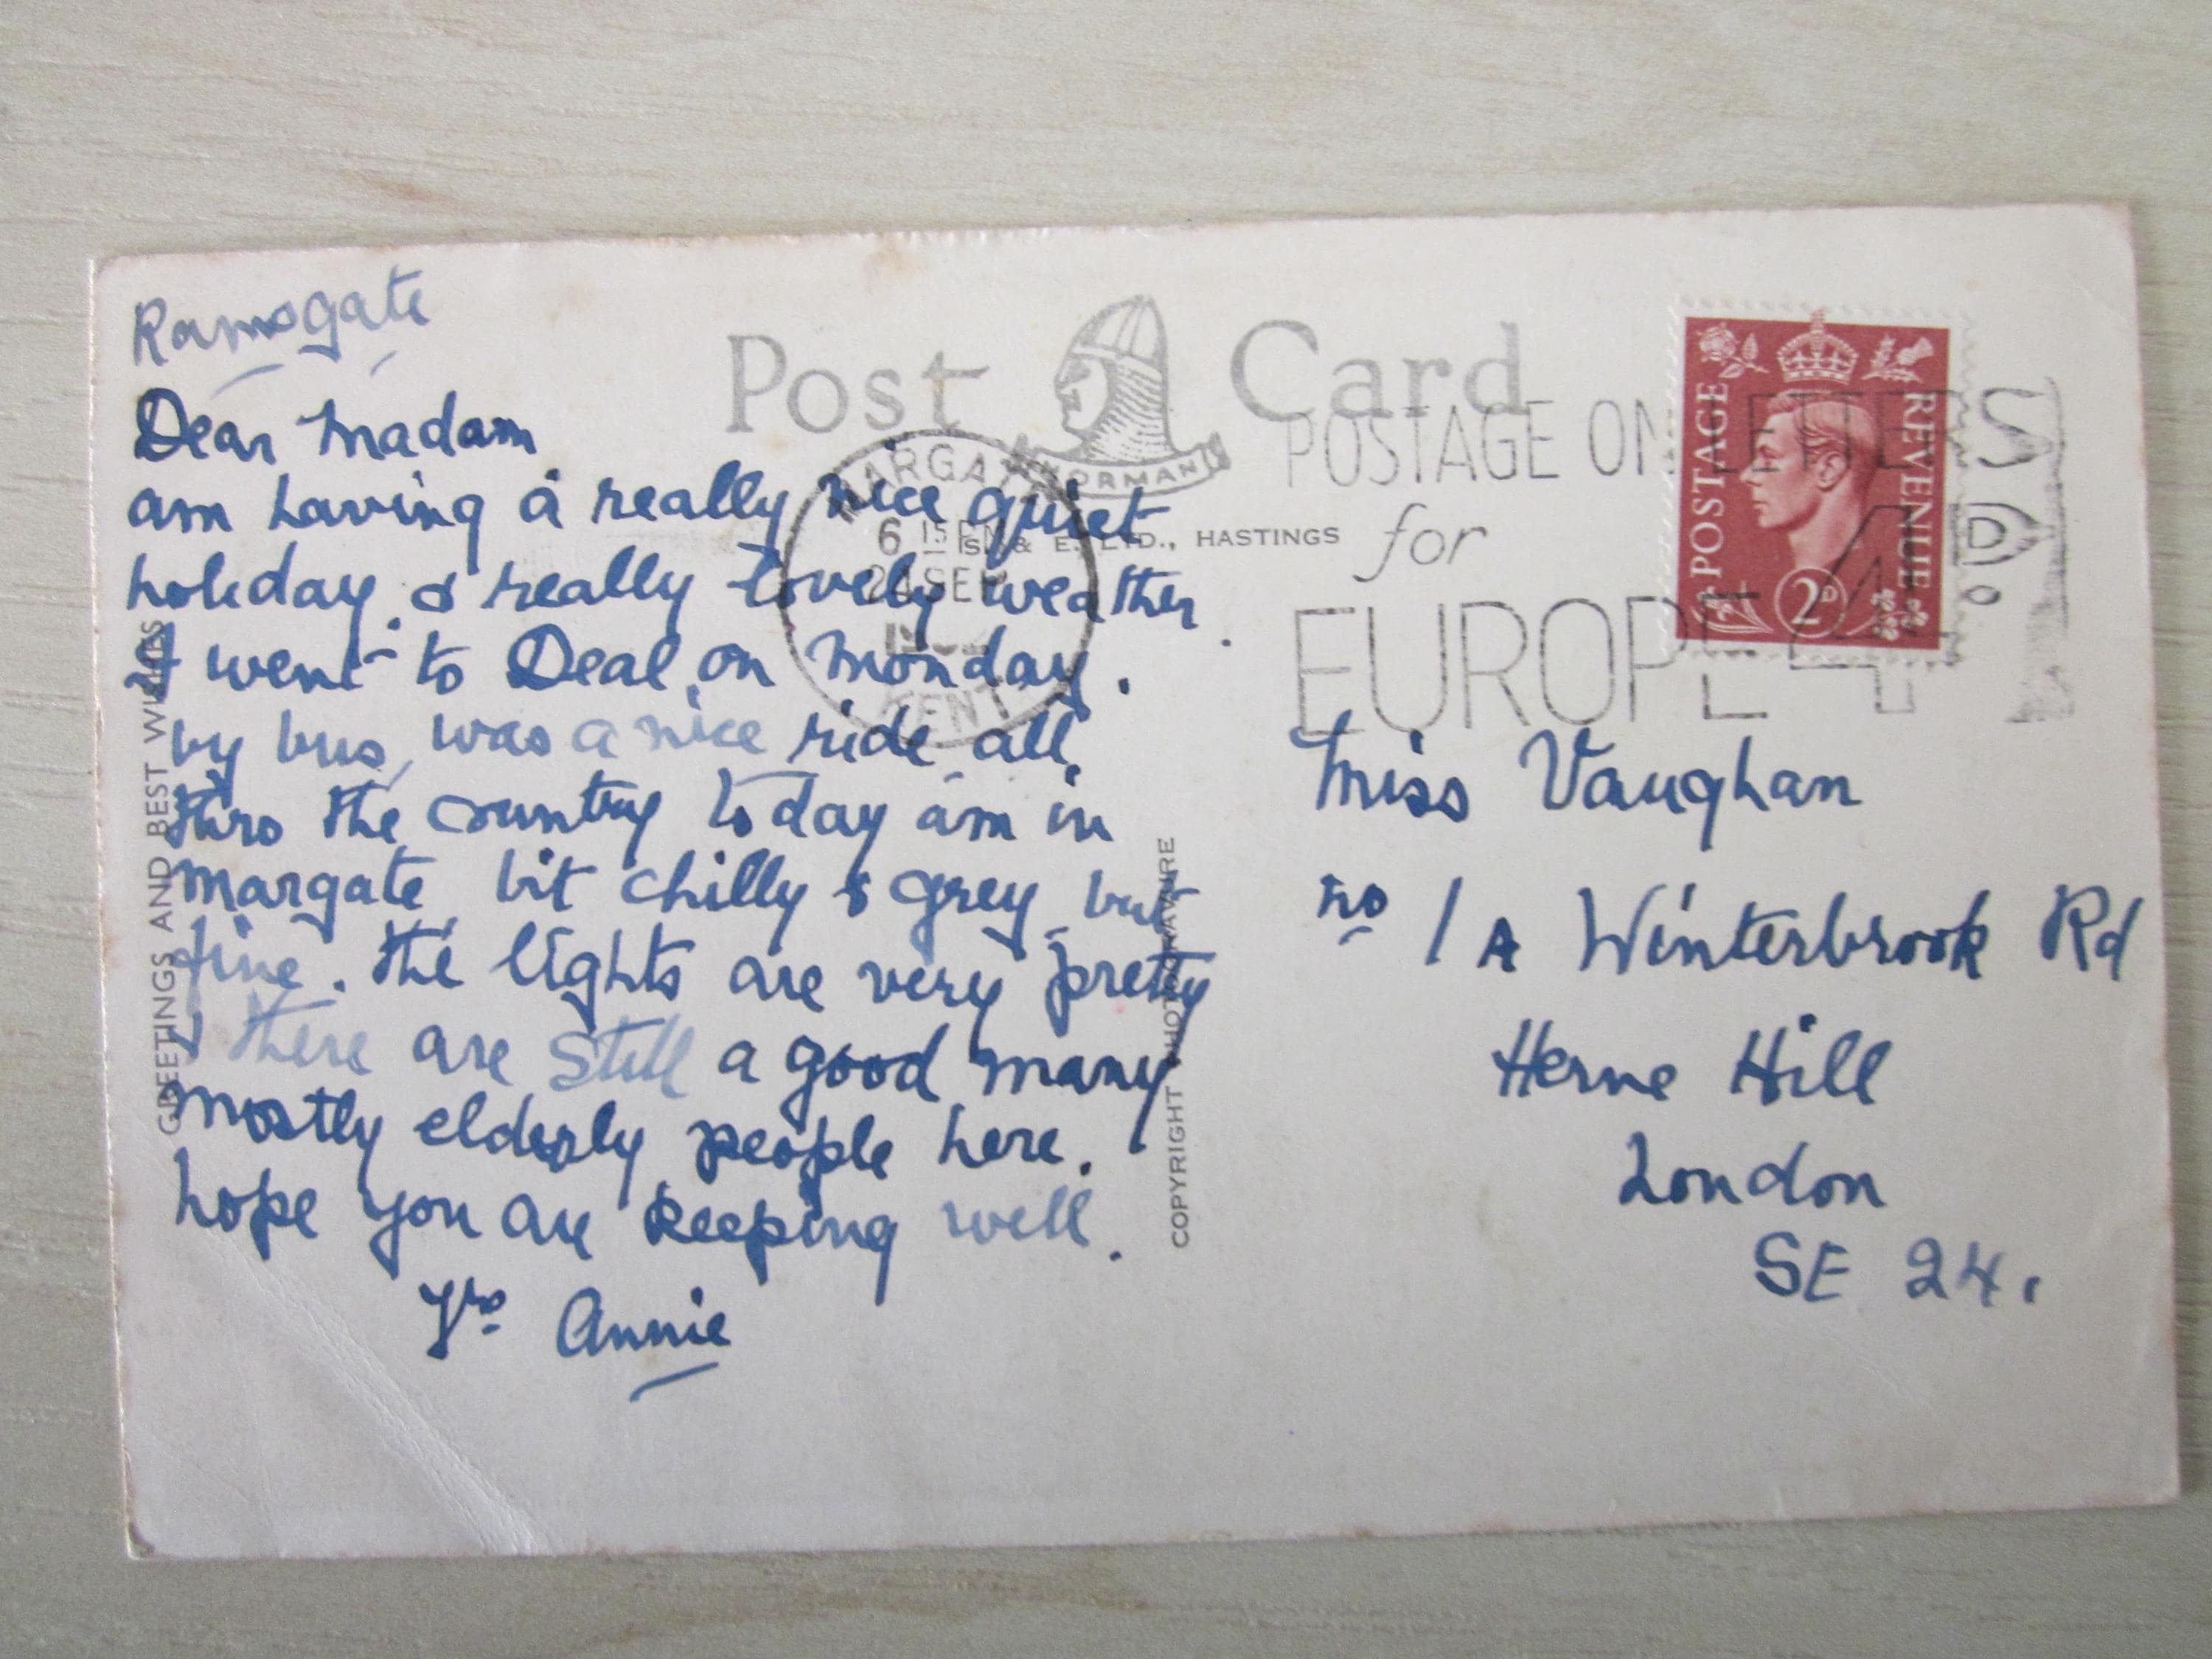 Ramsgate
Dear Madam
am having a really nice quiet
holiday & really lovely weather.
I went to Deal on Monday.
by bus, was a nice ride all
thro the country today am in
Margate bit chilly & grey but
fine. The lights are very pretty
there are still a good many
mostly elderly people here.
hope you are keeping well.
Yrs Annie
GREETINGS AND BEST WISHES
Post Card
NORMAN
S. & E. LTD., HASTINGS
COPYRIGHT PHOTOGRAVURE
MARGATE
6 15 PM
24 SEP
KENT
POSTAGE ON LETTERS
for
EUROPE 4D.
POSTAGE
REVENUE
2D
Miss Vaughan
No 1 A Winterbrook Rd
Herne Hill
London
SE 24.